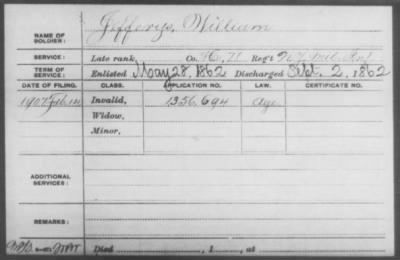 NAME OF SOLDIER: Jefferys, William
SERVICE: Late rank, Co. H, 71 Reg't N.Y. Mil. Inf.
TERM OF SERVICE: Enlisted May 28, 1862 Discharged Oct. 2, 1862
DATE OF FILING. CLASS. APPLICATION NO. LAW. CERTIFICATE NO.
1907 Feb Invalid, 1356.694 Age
Widow,
Minor,
ADDITIONAL SERVICES:
REMARKS:
Died , 1 , at